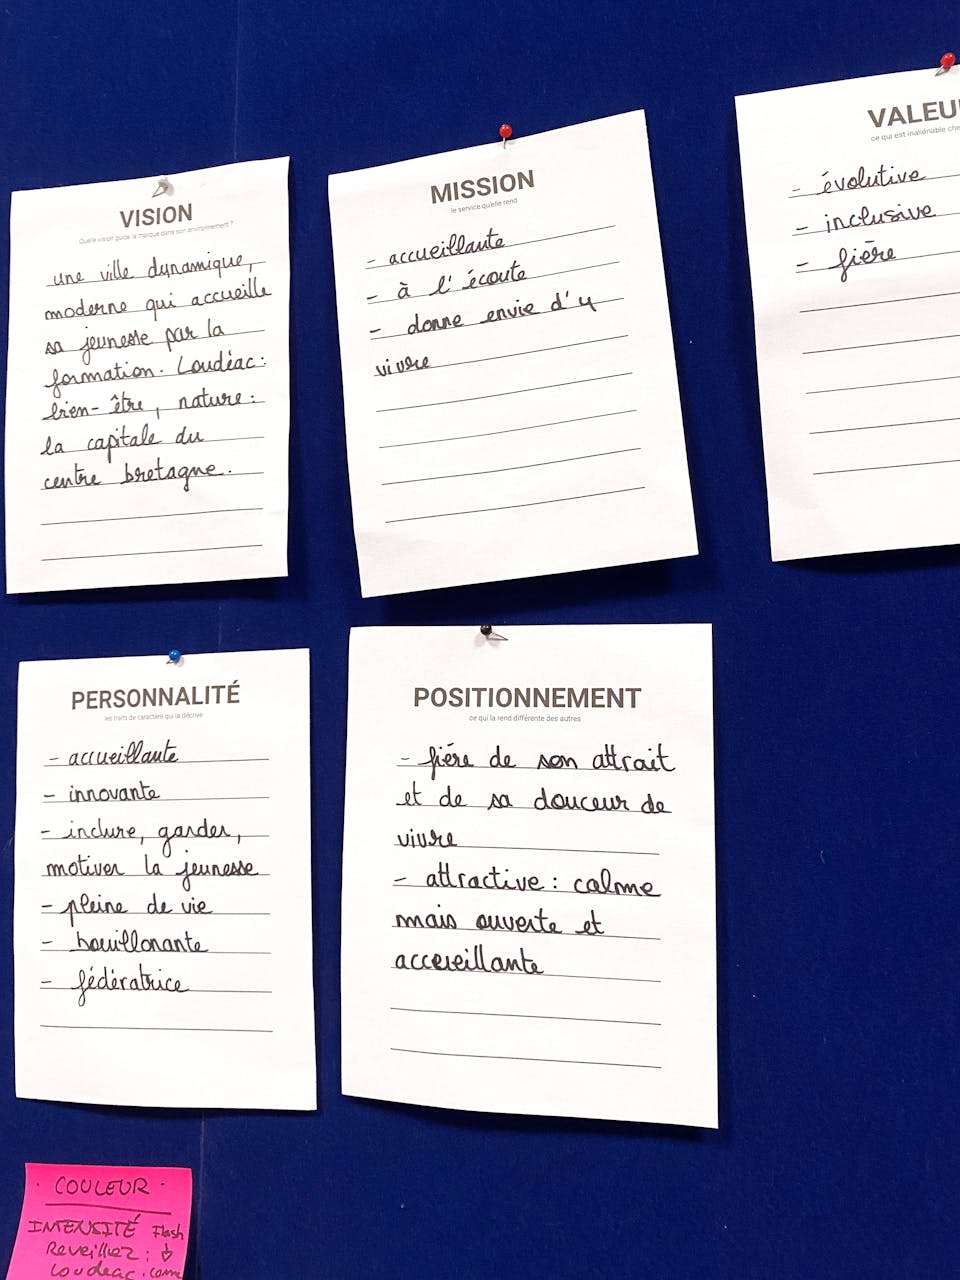 VISION
Quelle vision guide la marque dans son environnement ?
une ville dynamique,
moderne qui accueille
sa jeunesse par la
formation. Loudéac :
bien-être, nature :
la capitale du
centre bretagne.
MISSION
le service qu'elle rend
- accueillante
- à l'écoute
- donne envie d'y
vivre
VALEU
ce qui est inaliénable che
- évolutive
- inclusive
- fière
PERSONNALITÉ
les traits de caractère qui la décrive
- accueillante
- innovante
- inclure, garder,
motiver la jeunesse
- pleine de vie
- bouillonante
- fédératrice
POSITIONNEMENT
ce qui la rend différente des autres
- fière de son attrait
et de sa douceur de
vivre
- attractive : calme
mais ouverte et
accueillante
COULEUR
INTENSITÉ Flash
Reveillez : ↓
Loudeac.com